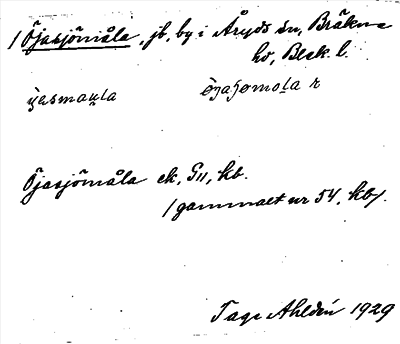 / Öjasjömåla, jb, by i Åryds sn, Bräkne
hd, Blek. l.
öjasjömåla r
Öjasjömåla ek, G11, kb.
/gammalt nr 54, kb/.
Tage Ahldén 1929